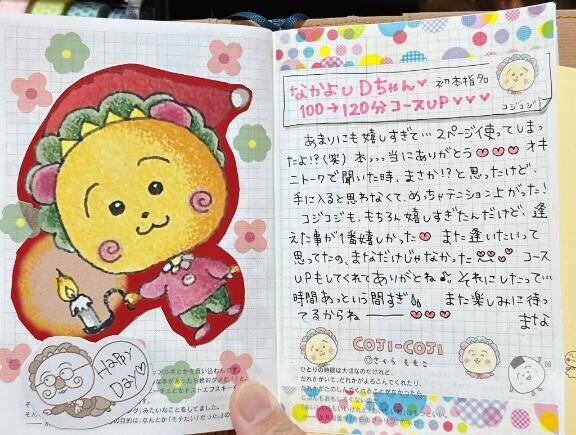 Happy
Day
なかよしDちゃん♥ 初本指名
100→120分コースUP♥♥♥
コジコジ
あまりにも嬉しすぎて…2ページ使ってしまっ
たよ!?(笑) 本っ...当にありがとう♥♥♥ オキ
ニトークで聞いた時、まさか!?と思ったけど、
手に入ると思わなくて、めっちゃテンション上がった!
コジコジも、もちろん嬉しすぎたんだけど、逢
えた事が1番嬉しかった♥ また逢いたいって
思ってたの、まなだけじゃなかった♥♥♥ コース
UPもしてくれてありがとね♪ それにしたって…
時間あっという間すぎ また楽しみに待っ
てるからね――♥♥♥
まな
COJI-COJI
©さくらももこ
ひとりの時間は大切なのだけれど、
だれかがいて、だれかがよろこんでくれたり、
66